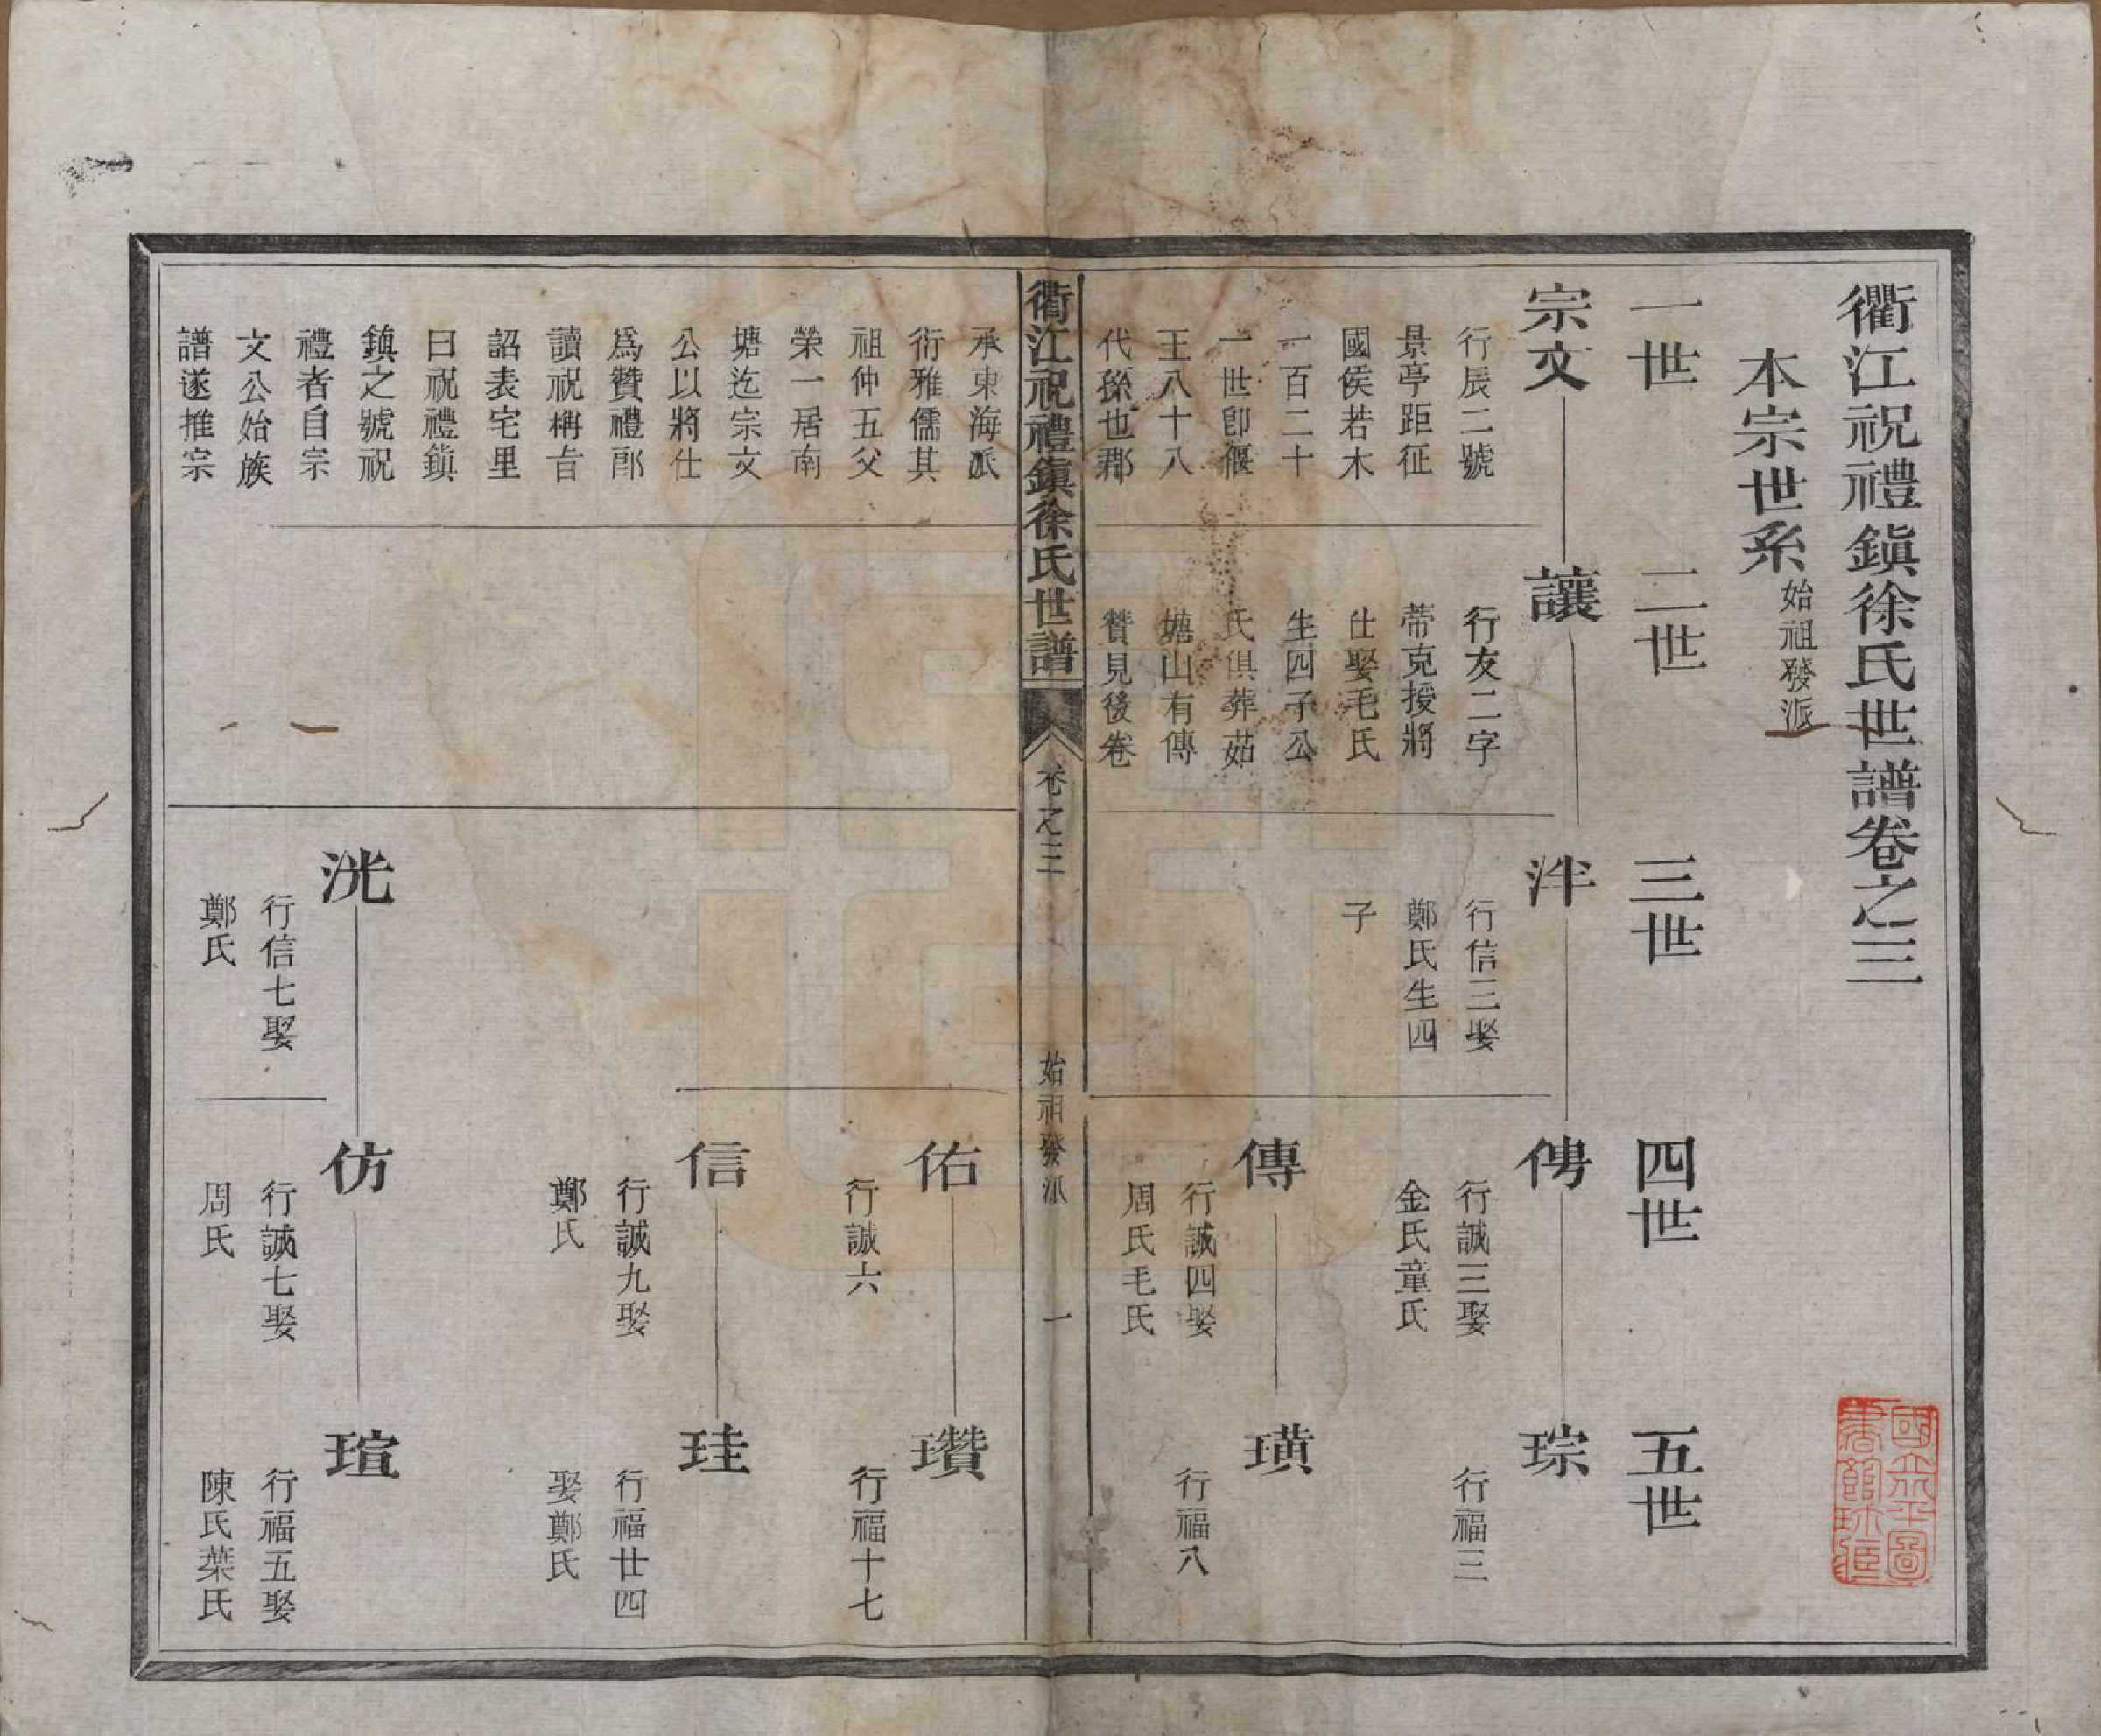 衢江祝禮鎭徐氏世譜卷之三
本宗世系始祖發派
一世
二世
三世
四世
五世
宗文
行辰二號
景亭距征
國侯若木
一百二十
一世卽偃
王八十八
代孫也郡
承東海派
衍雅儒其
祖仲五父
榮一居南
塘迄宗文
公以將仕
爲贊禮郎
讀祝稱旨
詔表宅里
曰祝禮鎭
鎮之號祝
禮者自宗
文公始族
譜遂推宗
讓
行友二字
蒂克授將
仕娶毛氏
生四子公
氏俱葬茹
塘山有傳
贊見後卷
泮
行信三娶
鄭氏生四
子
俜
行誠三娶
金氏童氏
琮
行福三
傳
行誠四娶
周氏毛氏
璜
行福八
衢江祝禮鎭徐氏世譜
卷之三
始祖發派
一
佑
行誠六
瓚
行福十七
信
行誠九娶
鄭氏
珪
行福廿四
娶鄭氏
洸
行信七娶
鄭氏
仿
行誠七娶
周氏
瑄
行福五娶
陳氏葉氏
國立北平圖
書館珍藏